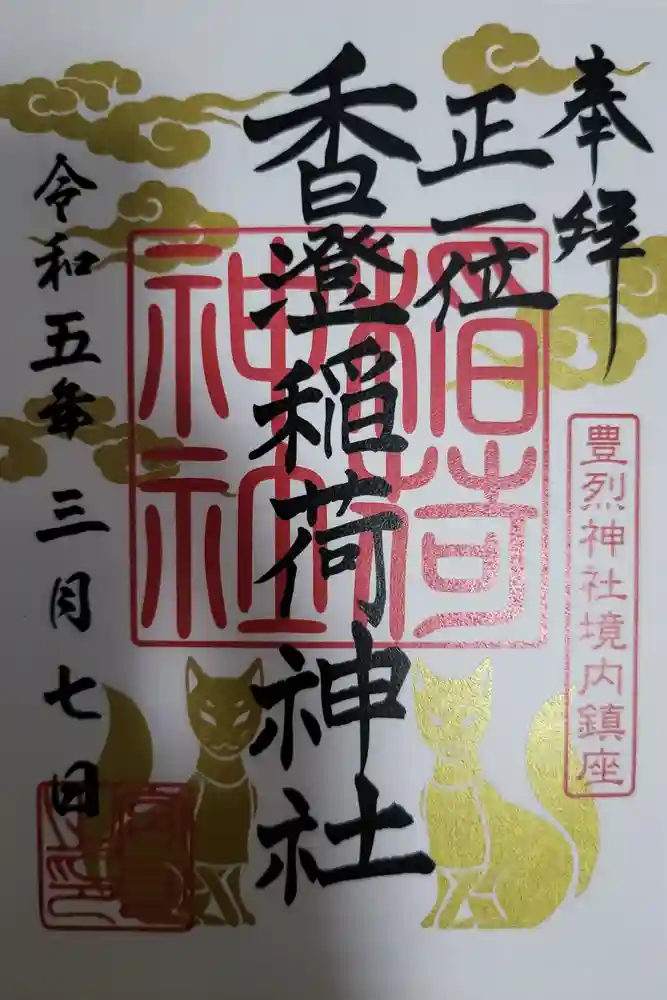 奉拝
正一位
香澄稲荷神社
令和五年 三月七日
豊烈神社境内鎮座
稲荷
神社